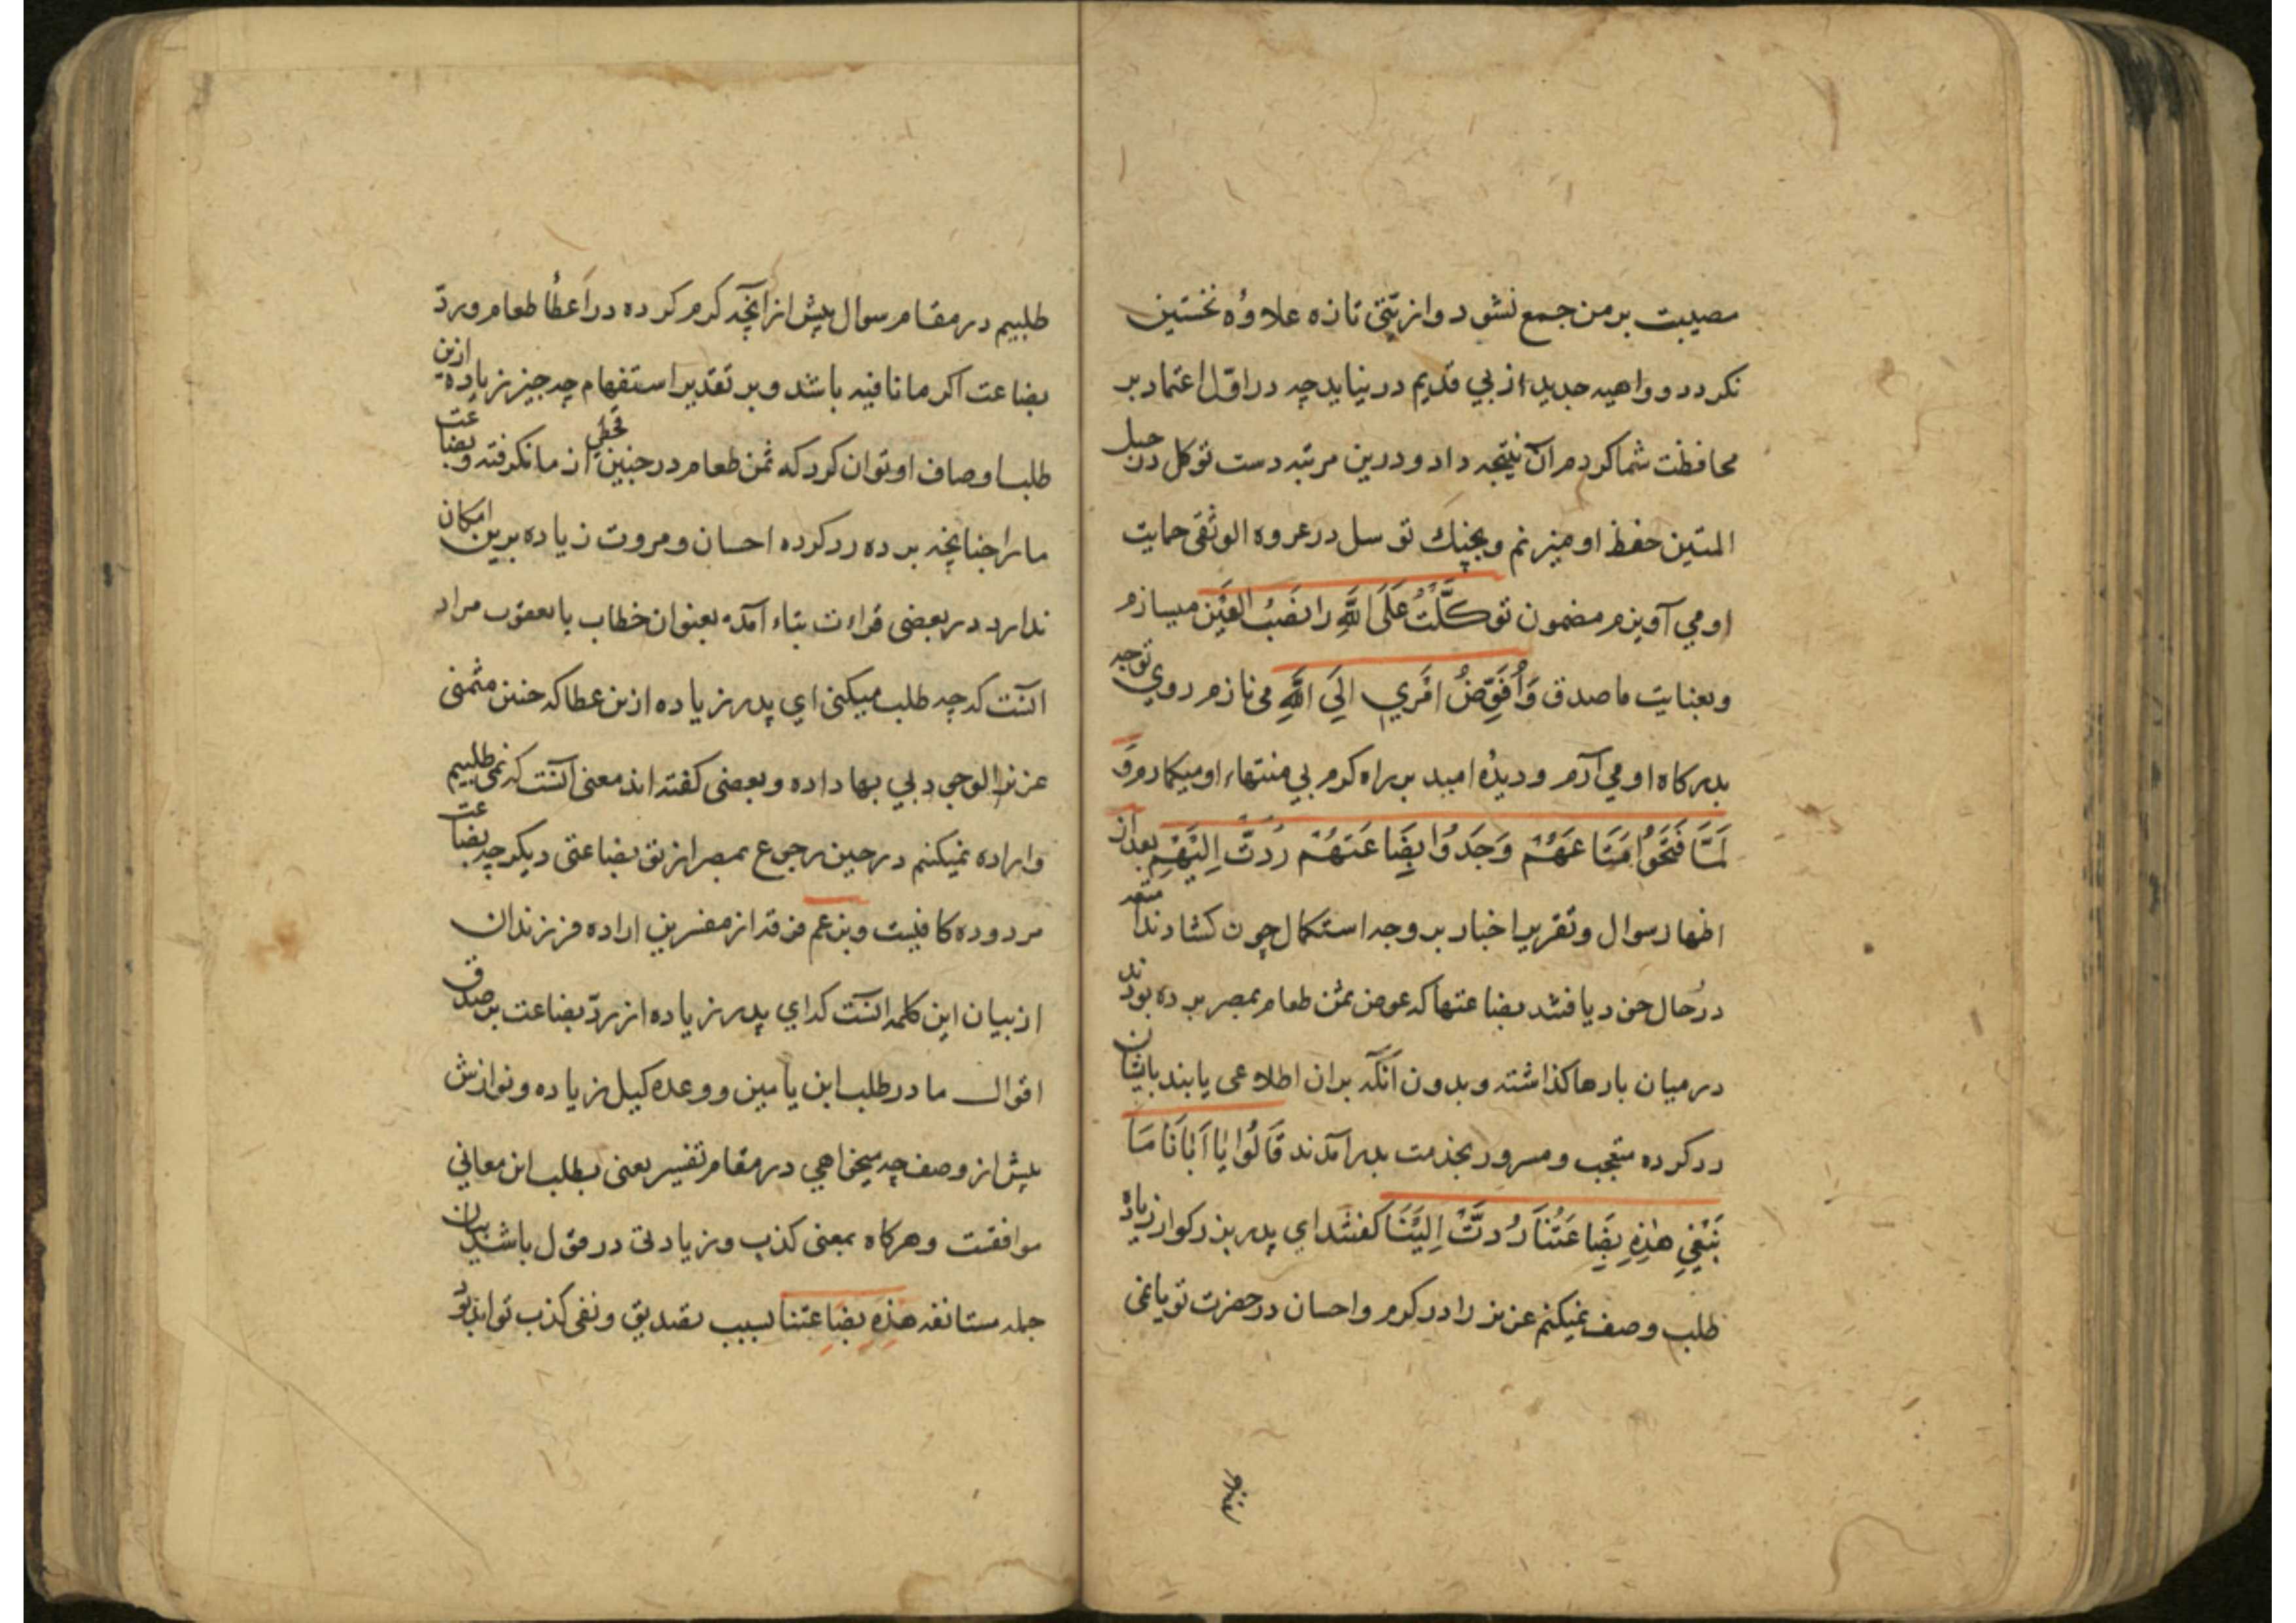 مصیبت بر من جمع نشود و از تنی تازه علاوهٔ نخستین
نکردد و واهیه جدید از پی قدیم در نیاید چه در اوّل اعتماد بر
محافظت شما کردم آن نتیجه داد و درین مرتبه دست توکل در حبل
المتین حفظ او میزنم و بچنك توسل در عروه الوثقی حمایت
او می آویزم مضمون توکَّلْتُ عَلَی اللَّهِ را نَصْبُ العَیْن میسازم
و بعنایت ماصدق وَاُفَوِّضُ اَمْرِي اِلَی اللَّهِ می نازم روي توجه
بدرکاه او می آرم و دیدهٔ امید بر راه کرم بي منتهاء او میکمارم وَ
لَمَّا فَتَحُوا مَتَاعَهُمْ وَجَدُوا بِضَاعَتَهُمْ رُدَّتْ اِلَیْهِمْ بعد از
اظهار سوال و تقریر اخبار بر وجه استکمال چون کشادند
در حال خود یافتند بضاعتها که عوض ثمن طعام بمصر برده بودند
در میان بارها کذاشته و بدون آنکه بران اطلاعی یابند بایشان
رد کرده متعجب و مسرور بخدمت پدر آمدند قَالُوا یَا اَبَانَا مَا
نَبْغِي هٰذِهِ بِضَاعَتُنَا رُدَّتْ اِلَیْنَا کفتند اي پدر بزرکوار زیاده
طلب وصف نمیکنم عزیز را در کرم و احسان در حضرت تو یا نمی
طلبیم در مقام سوال بیش از آنچه کرم کرده در اعطأ طعام و ردّ
بضاعت اکر ما نافیه باشد و بر تقدیر استفهام چه چیز زیاده ازین
طلب اوصاف او توان کرد که ثمن طعام در چنین قحطی از ما نکرفته و بضاعت
ما را چنانچه برده رد کرده احسان و مروت زیاده برین امکان
ندارد در بعضی قراءت بتاء آمده بعنوان خطاب با یعقوب مراد
آنست که چه طلب میکنی اي پدر زیاده ازین عطا که چنین مثمنی
عزیز الوجود بي بها داده و بعضی کفته اند معنی آنست که نمی طلبیم
و اراده نمیکنم در حین رجوع بمصر از تو بضاعتی دیکر چه بضاعت
مردوده کافیست و بزعم فرقه از مفسرین اراده فرزندان
از بیان این کلمه آنست که اي پدر زیاده از ردّ بضاعت بر صدق
اقوال ما در طلب ابن یامین و وعده کیل زیاده و نوازش
بیش از وصف چه میخواهي در مقام تفسیر یعنی بطلب این معانی
موافقست و هرکاه بمعنی کذب و زیادتی در قول باشد بیان
جمله مستانفه هَذِهِ بِضَاعتنا بسبب تصدیق و نفی کذب تواند بود